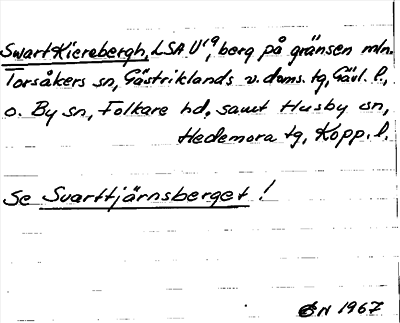 Swart Kierebergh, LSA U19, berg på gränsen mln.
Torsåkers sn, Gästriklands v. doms. tg, Gävl. l.,
o. By sn, Folkare hd, samt Husby sn,
Hedemora tg, Kopp. l.
Se Svarttjärnsberget!
N 1967